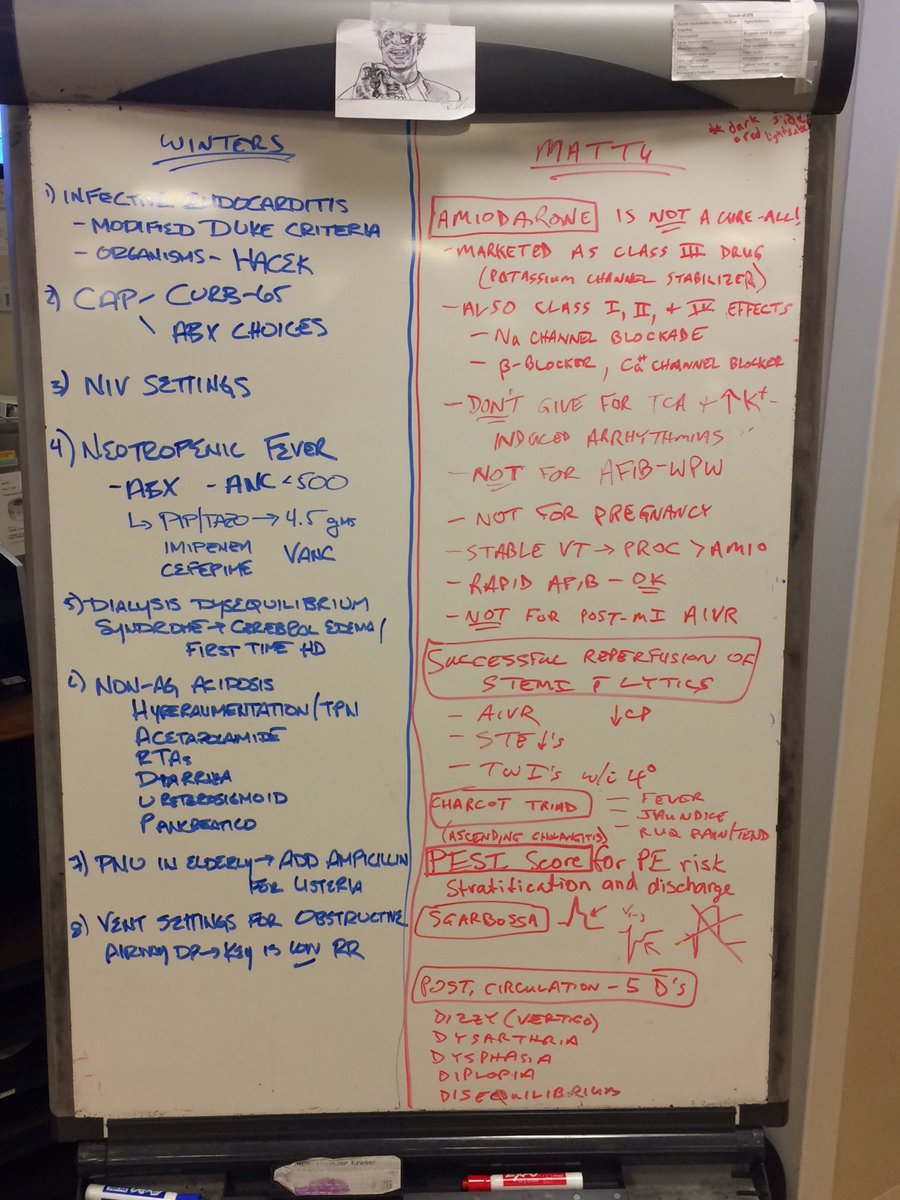 WINTERS
1) INFECTIVE ENDOCARDITIS
- MODIFIED DUKE CRITERIA
- ORGANISMS - HACEK
2) CAP - CURB-65
\ ABX CHOICES
3) NIV SETTINGS
4) NEOTROPENIC FEVER
- ABX - ANC < 500
↳ PIP/TAZO → 4.5 gms
IMIPENEM VANC
CEFEPIME
5) DIALYSIS DYSEQUILIBRIUM
SYNDROME → CEREBROL EDEMA /
FIRST TIME HD
6) NON-AG ACIDOSIS
HYPERALIMENTATION/TPN
ACETAZOLAMIDE
RTAs
DIARRHEA
URETEROSIGMOID
PANCREATICO
7) PNU IN ELDERLY → ADD AMPICILLIN
FOR LISTERIA
8) VENT SETTINGS FOR OBSTRUCTIVE
AIRWAY DZ → KEY IS LOW RR
* dark side
red lightsaber
MATTU
AMIODARONE IS NOT A CURE-ALL!
- MARKETED AS CLASS III DRUG
(POTASSIUM CHANNEL STABILIZER)
- ALSO CLASS I, II, + IV EFFECTS
- Na CHANNEL BLOCKADE
- β-BLOCKER, Ca++ CHANNEL BLOCKER
- DON'T GIVE FOR TCA + ↑K+-
INDUCED ARRHYTHMIAS
- NOT FOR AFIB-WPW
- NOT FOR PREGNANCY
- STABLE VT → PROC > AMIO
- RAPID AFIB - OK
- NOT FOR POST-MI AIVR
SUCCESSFUL REPERFUSION OF
STEMI c̄ LYTICS
- AIVR ↓CP
- STE ↓'s
- TWI's w/i 4°
CHARCOT TRIAD - FEVER
- JAUNDICE
(ASCENDING CHOLANGITIS) - RUQ PAIN/TEND
PESI Score for PE risk
Stratification and discharge
SGARBOSSA V1-3
POST. CIRCULATION - 5 D's
DIZZY (VERTIGO)
DYSARTHRIA
DYSPHASIA
DIPLOPIA
DISEQUILIBRIUM
Causes of STE
EXPO
EXPO